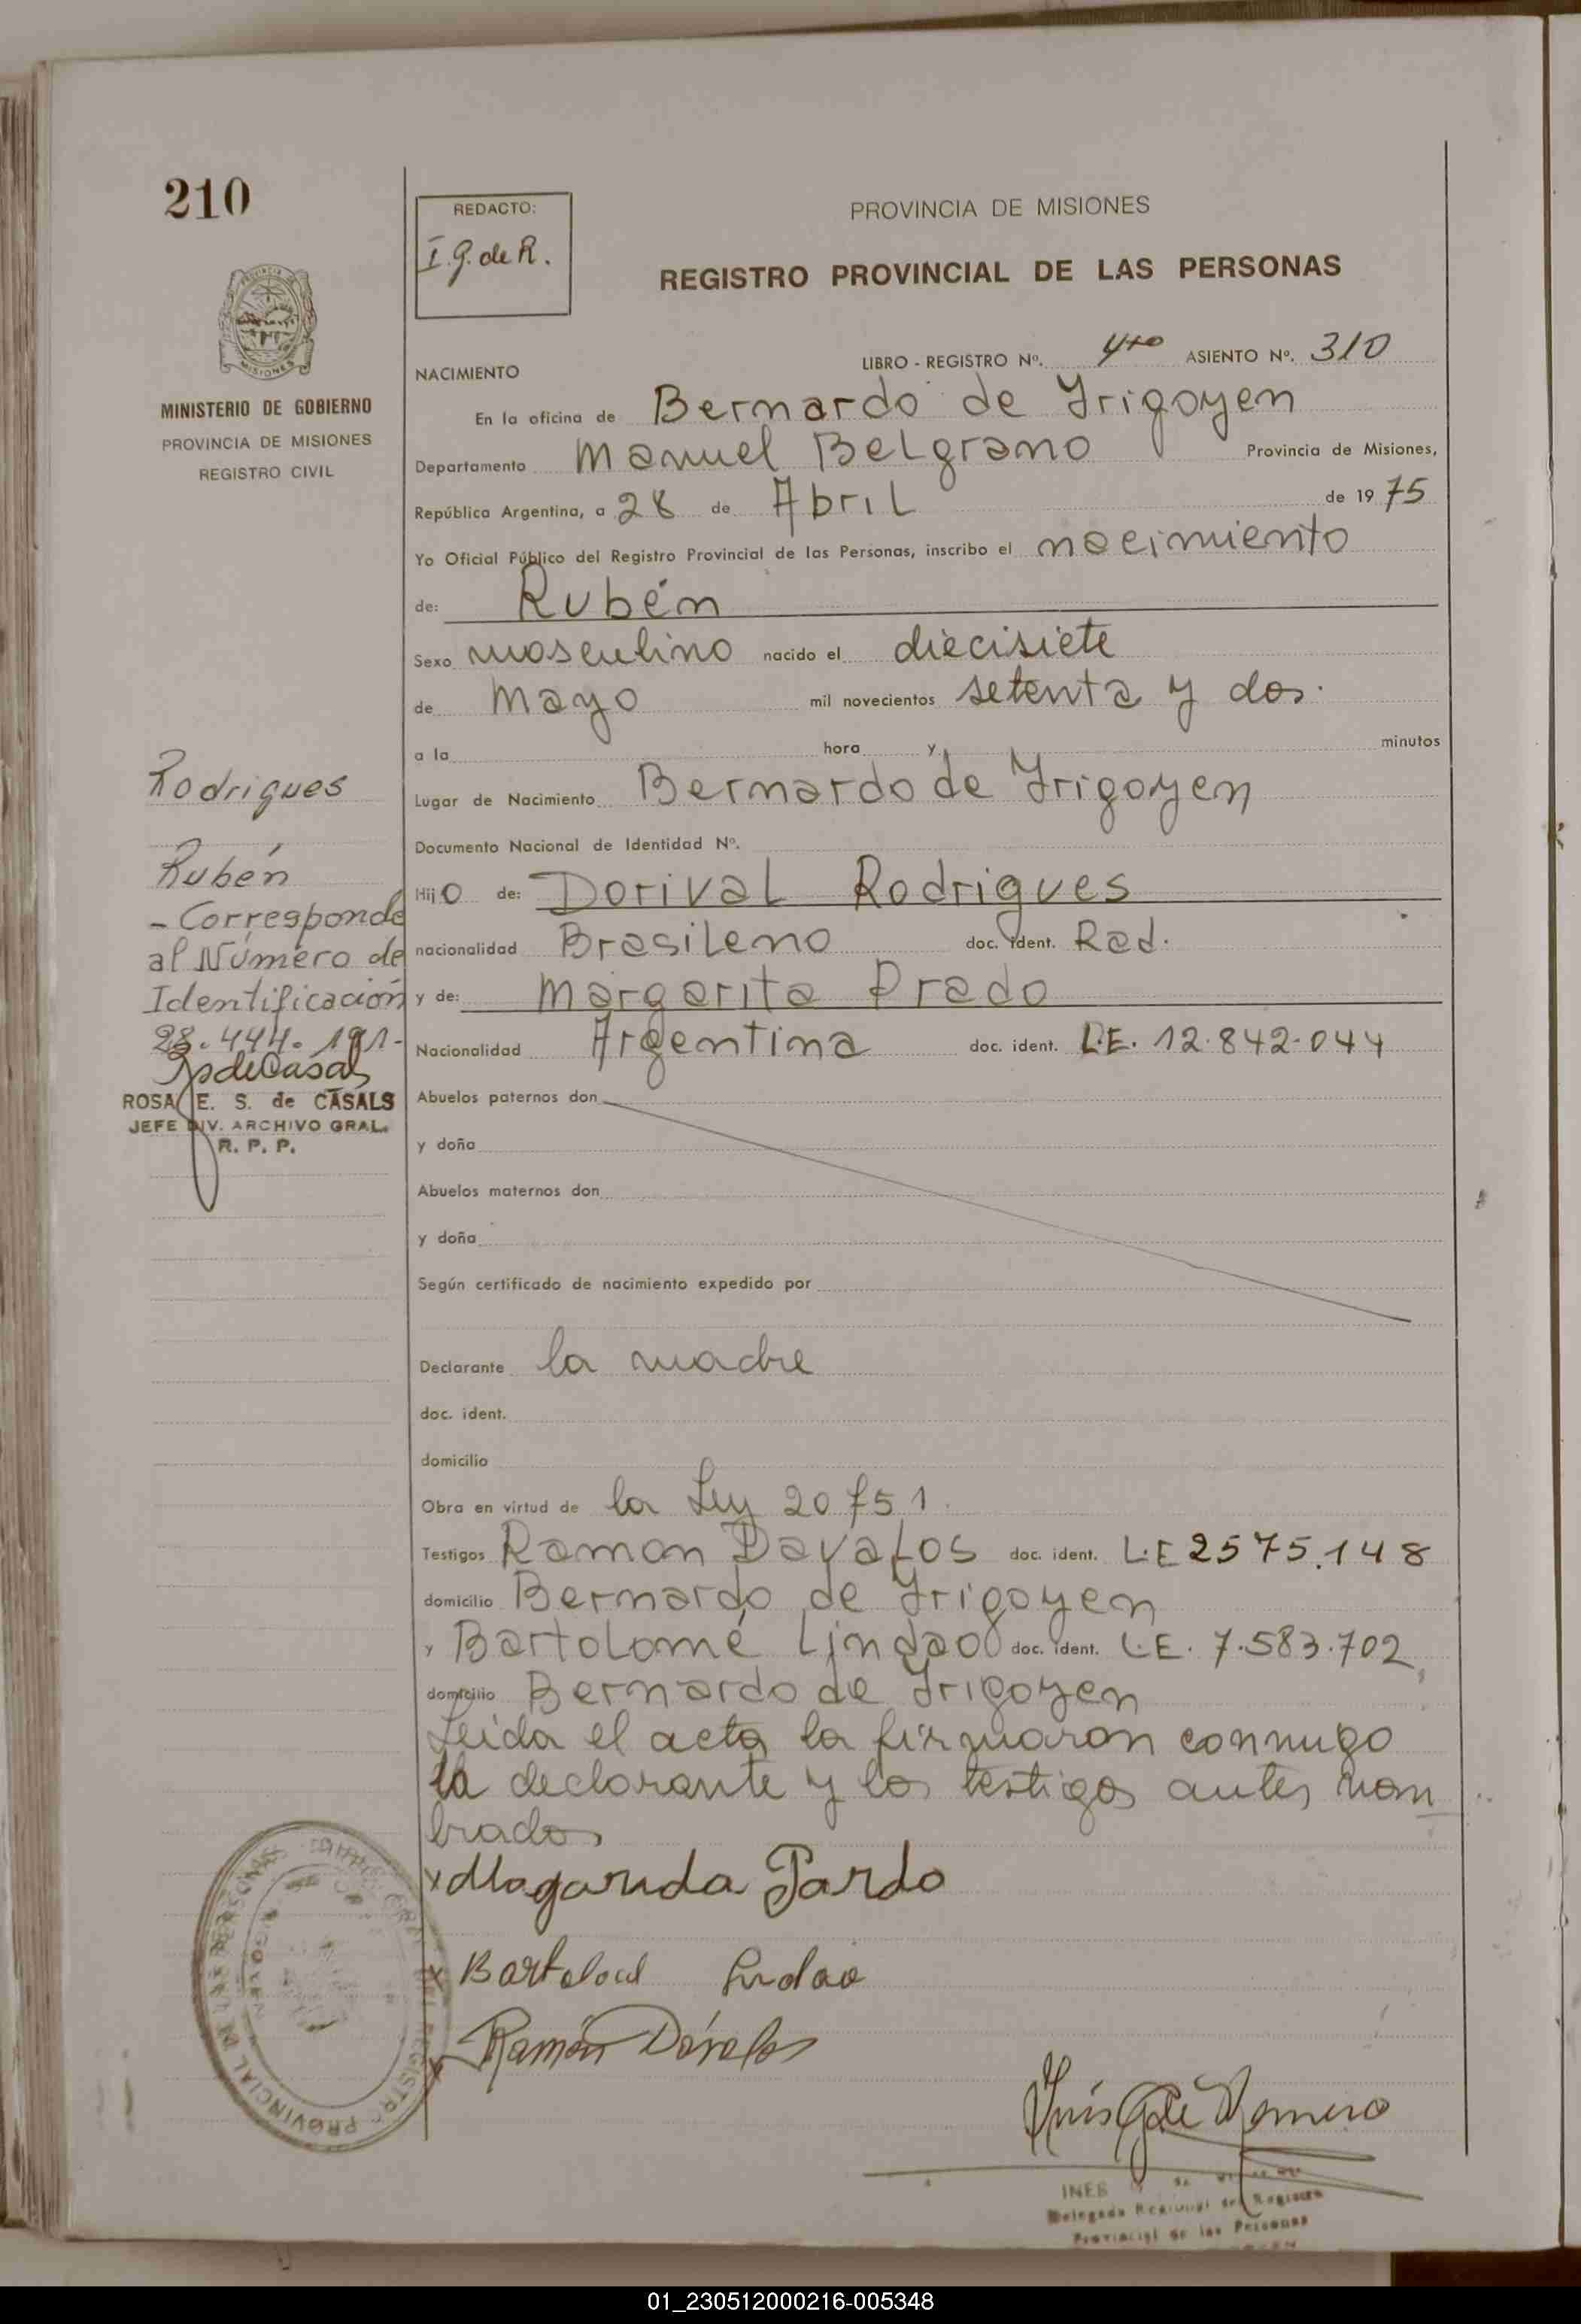 210
REDACTO:
I. G. de R.
PROVINCIA DE MISIONES
REGISTRO PROVINCIAL DE LAS PERSONAS
PROVINCIA DE
MISIONES
MINISTERIO DE GOBIERNO
PROVINCIA DE MISIONES
REGISTRO CIVIL
NACIMIENTO
LIBRO - REGISTRO Nº. 4to ASIENTO Nº. 310
En la oficina de Bernardo de Irigoyen
Departamento Manuel Belgrano Provincia de Misiones,
República Argentina, a 28 de Abril de 1975
Yo Oficial Público del Registro Provincial de las Personas, inscribo el nacimiento
de: Rubén
Sexo masculino nacido el diecisiete
de Mayo mil novecientos setenta y dos.
a la hora y minutos
Lugar de Nacimiento Bernardo de Irigoyen
Documento Nacional de Identidad Nº.
Hijo de: Dorival Rodrigues
nacionalidad Brasileno doc. ident. Rad.
y de: Margarita Prado
Nacionalidad Argentina doc. ident. L.E. 12.842.044
Abuelos paternos don
y doña
Abuelos maternos don
y doña
Según certificado de nacimiento expedido por
Declarante la madre
doc. ident.
domicilio
Obra en virtud de la Ley 20751.
Testigos Ramon Davalos doc. ident. L.E 2575.148
domicilio Bernardo de Irigoyen
y Bartolomé Lindao doc. ident. L.E. 7.583.702
domicilio Bernardo de Irigoyen
Leida el acta la firmaron conmigo
la declarante y los testigos antes nom
brados
x Magarida Pardo
x Bartolome Lindao
x Ramón Dávalos
Rodrigues
Rubén
- Corresponde
al Número de
Identificación
28.444.191-
ROSA E. S. de CASALS
JEFE DIV. ARCHIVO GRAL.
R. P. P.
REGISTRO PROVINCIAL DE LAS PERSONAS
Inés G de Romero
INES
Delegada Regional del Registro
Provincial de las Personas
01_230512000216-005348